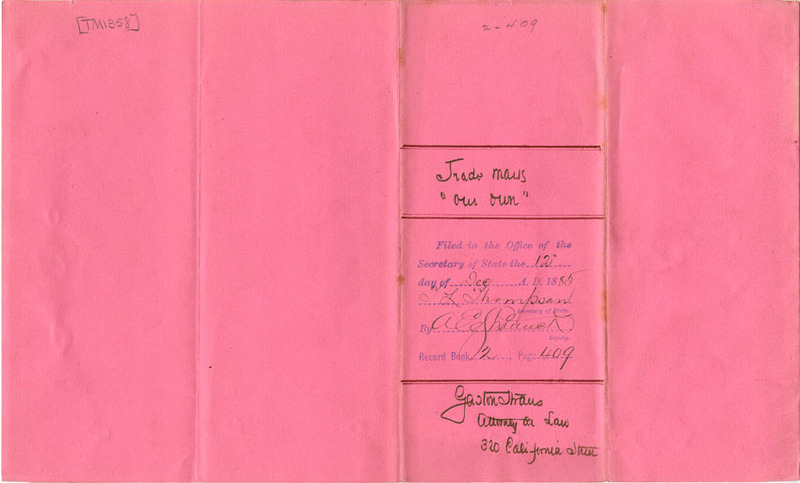 [TM1358]
2-409
Trade mark
"our own"
Filed in the Office of the
Secretary of State the 12
day of Dec A. D. 1885
T L Thompson
Secretary of State.
By A E
Deputy.
Record Book 2, Page 409
Gaston Straus
Attorney at Law
320 California Street